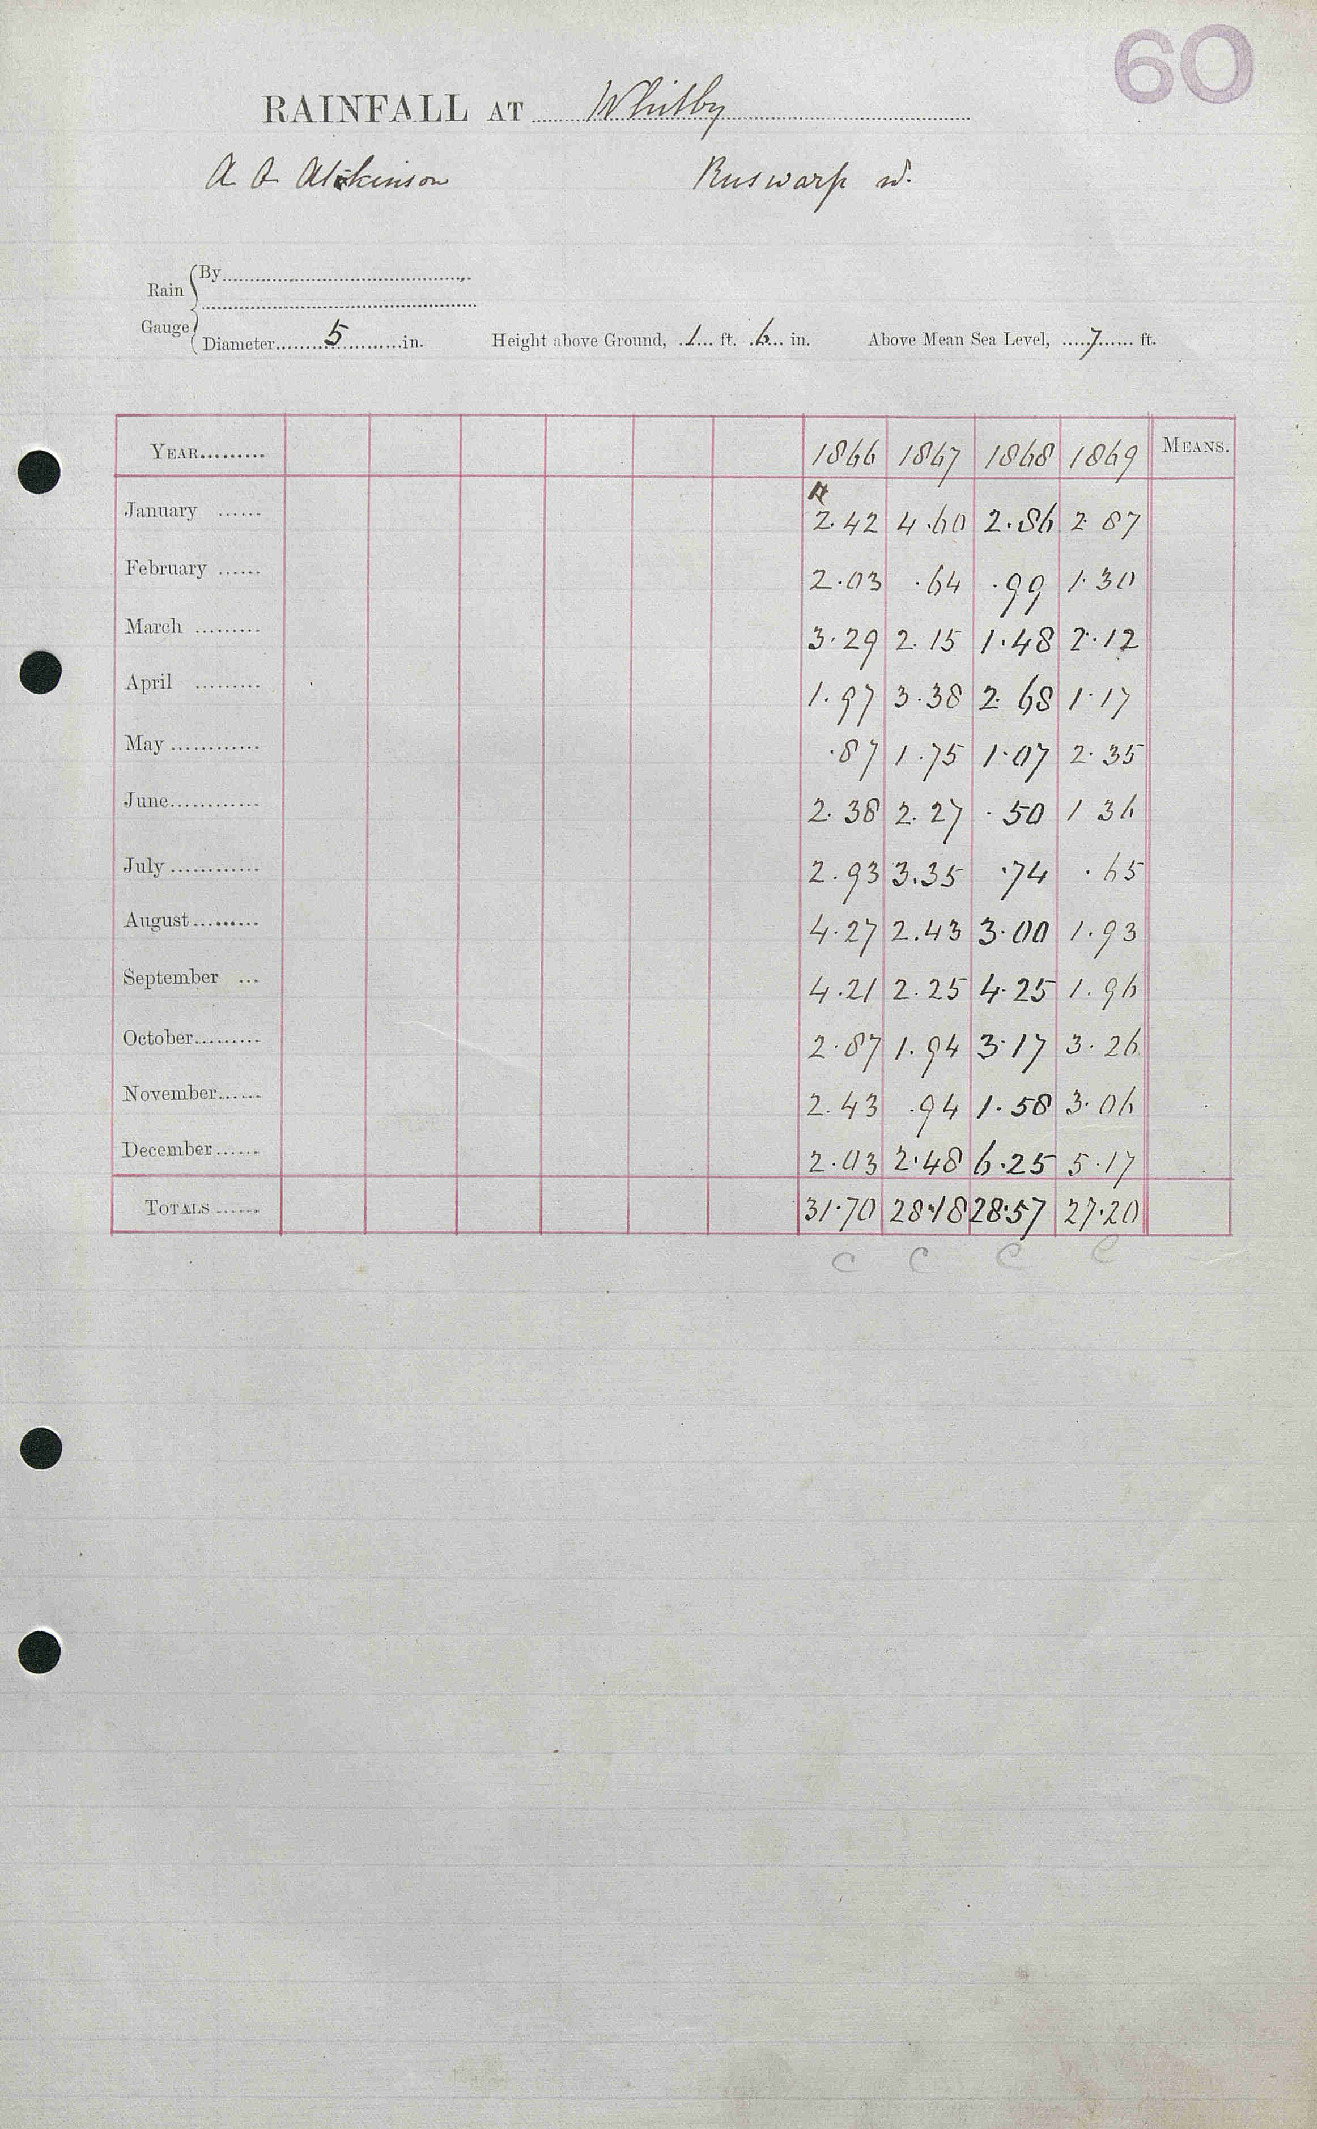 60
RAINFALL AT Whitby
Atkinson Ruswarp
Rain Gauge
By
Diameter 5 in. Height above Ground, 1 ft. 6 in. Above Mean Sea Level, 7 ft.
YEAR 1866 1867 1868 1869 MEANS.
January 2.42 4.60 2.86 2.87
February 2.03 .64 .99 1.30
March 3.29 2.15 1.48 2.12
April 1.97 3.38 2.68 1.17
May .87 1.75 1.07 2.35
June 2.38 2.27 .50 1 36
July 2.93 3.35 .74 .65
August 4.27 2.43 3.00 1.93
September 4.21 2.25 4.25 1.96
October 2.87 1.94 3.17 3.26
November 2.43 .94 1.58 3.06
December 2.03 2.48 6.25 5.17
TOTALS 31.70 28.18 28.57 27.20
C C C C